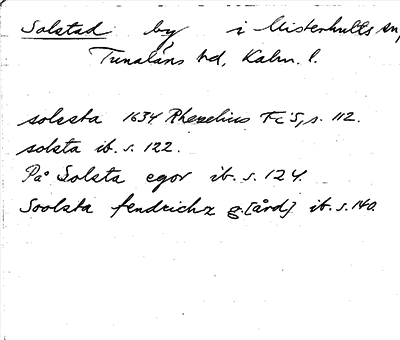 Solstad by i Misterhults sn,
Tunaläns hd, Kalm. l.
solssta 1634 Rhezelius FcS, s. 112.
solsta ib. s. 122.
På Solsta egor ib. s. 124.
Soolsta fendrichz g[ård] ib. s. 140.